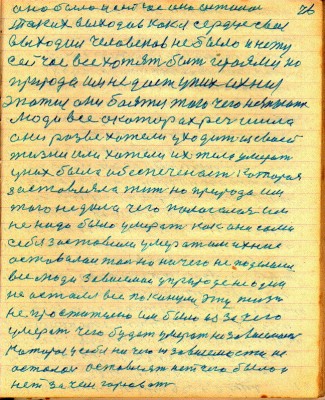 26
оно было и нет
таких выходов как сердце своя
выходил человеков не было и нету
сей час все хотят быть героями но
природа им не дает у них
знают они боятся того чего не знают
люди все о которых речь шла
они разве хотели уходить из своей
жизни или хотели их тело умерать
у них была обеспеченость которая
заставляла жить но природа им
того не дала чего полагалося им
не надо было умерать как они сами
себя заставили умерать
оставалося только ничего не поделаеш
все люди зависимая у природе не один
не остался все покинули эту жизнь
не простительно им было из за чего
умерать чего будет умерать независимая
которая у себя ни чего и зависимости не
оставлять нет чего было и
нет за чем